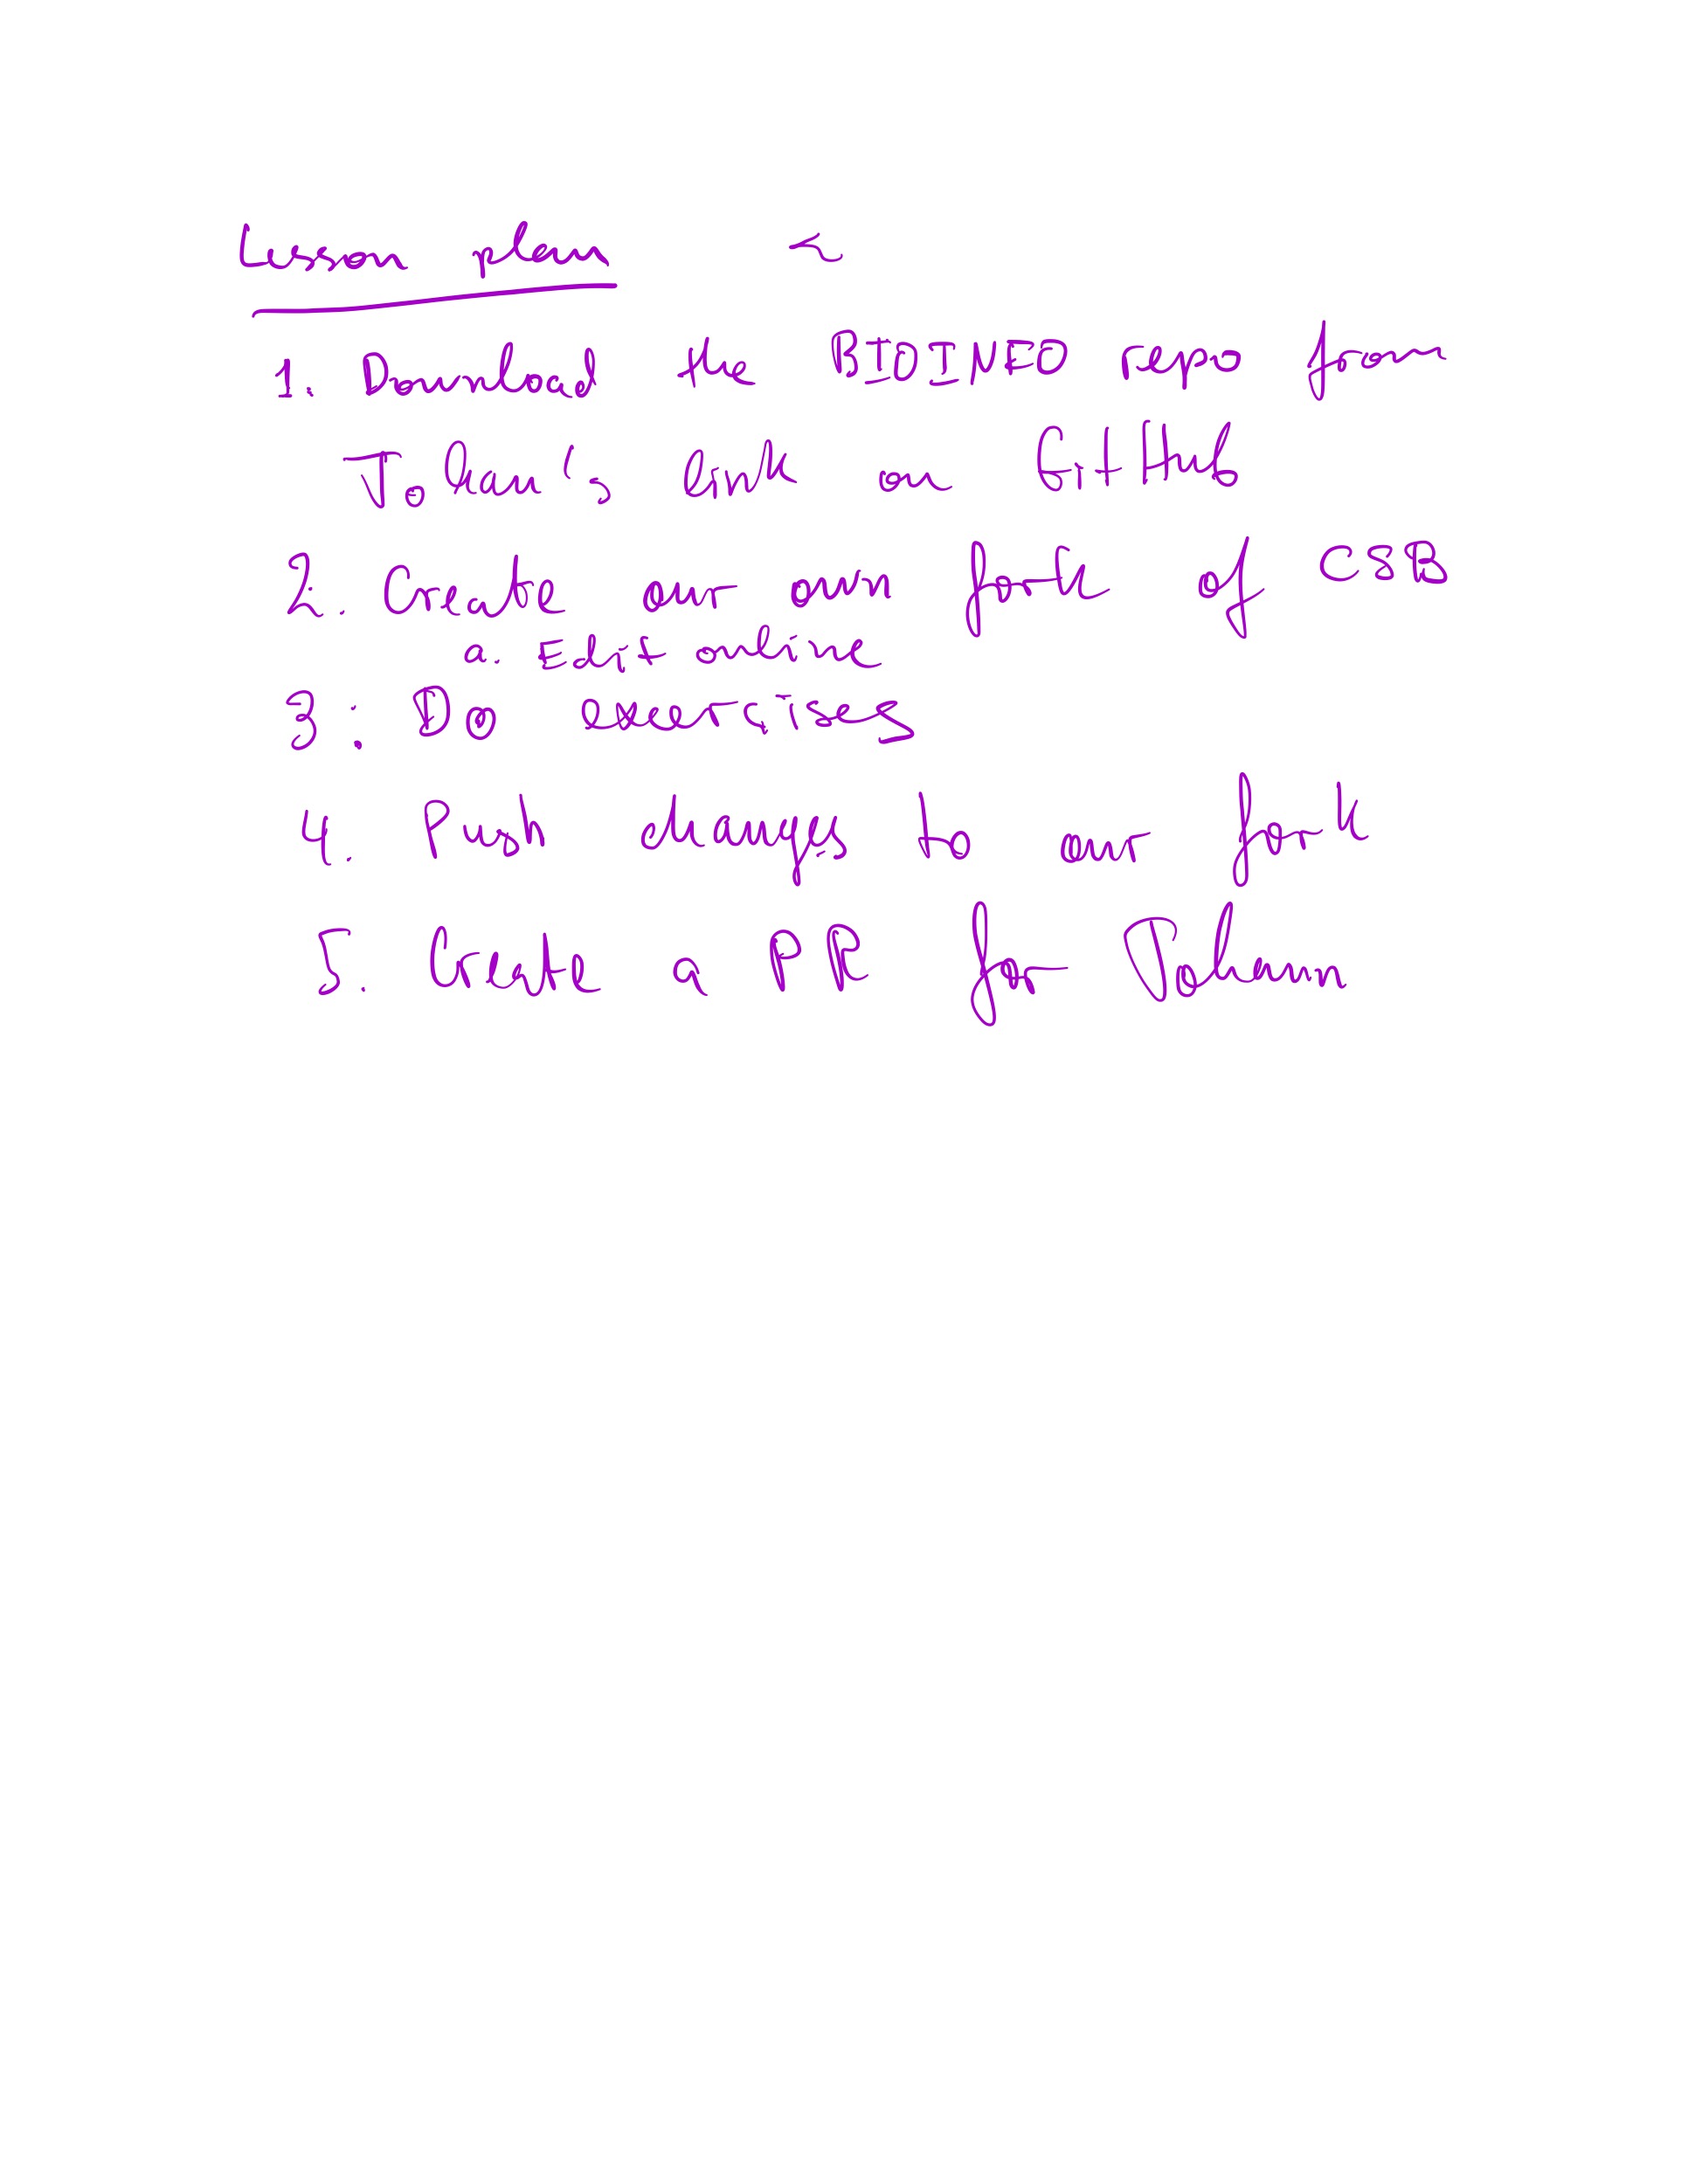 Lesson plan
1. Download the BIOINFO repo from
Johan's link on GitHub
2. Create our own fork of CSB
a. Edit online
3: Do exercises
4. Push changes to our fork
5. Create a PR for Johann